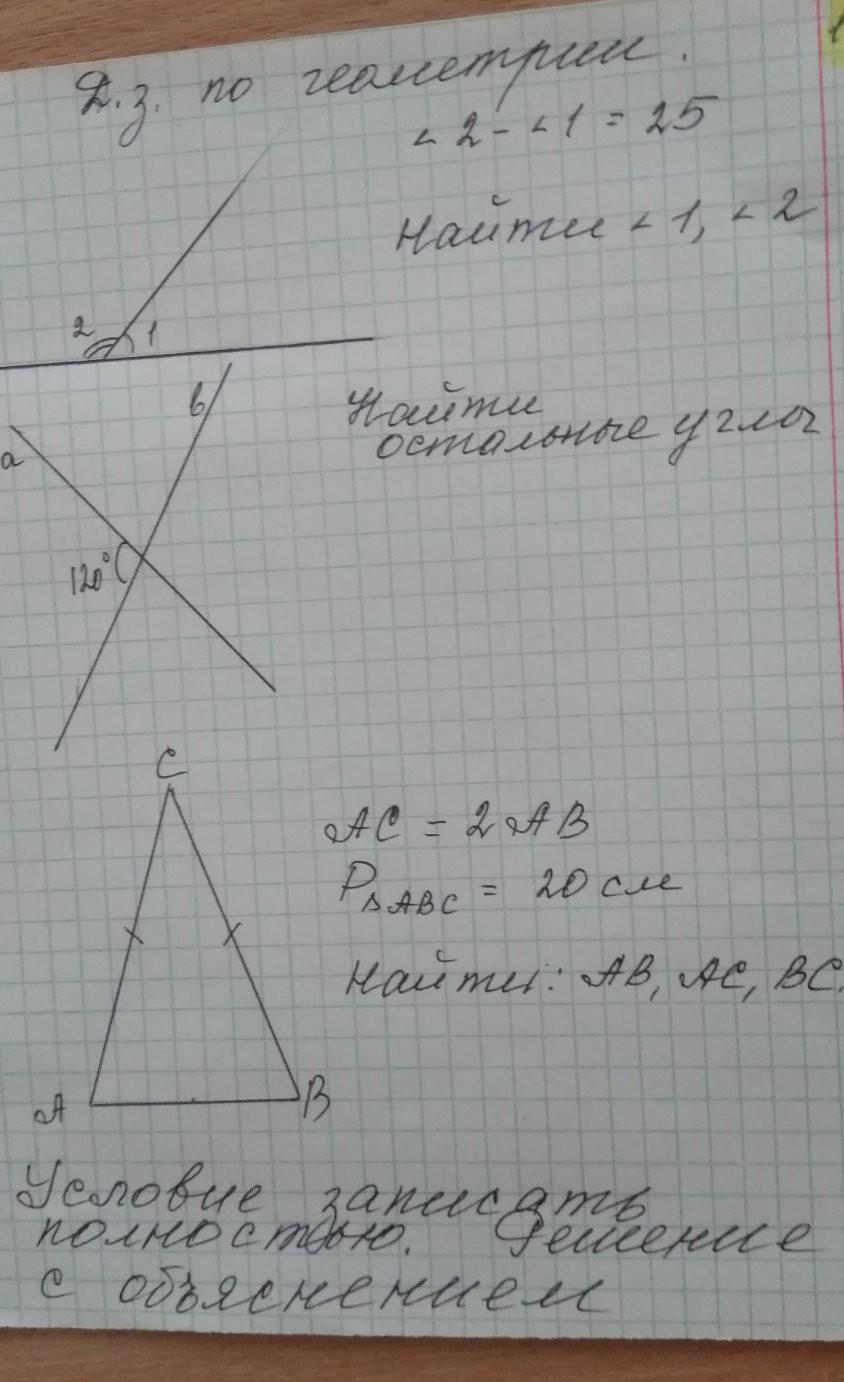 Д.з. по геометрии.
∠2 - ∠1 = 25
Найти ∠1, ∠2
2 1
в
Найти
остальные углы
а
120°
C
AC = 2AB
P△ABC = 20 см
Найти: AB, AC, BC.
A B
Условие записать
полностью. Решение
с объяснением